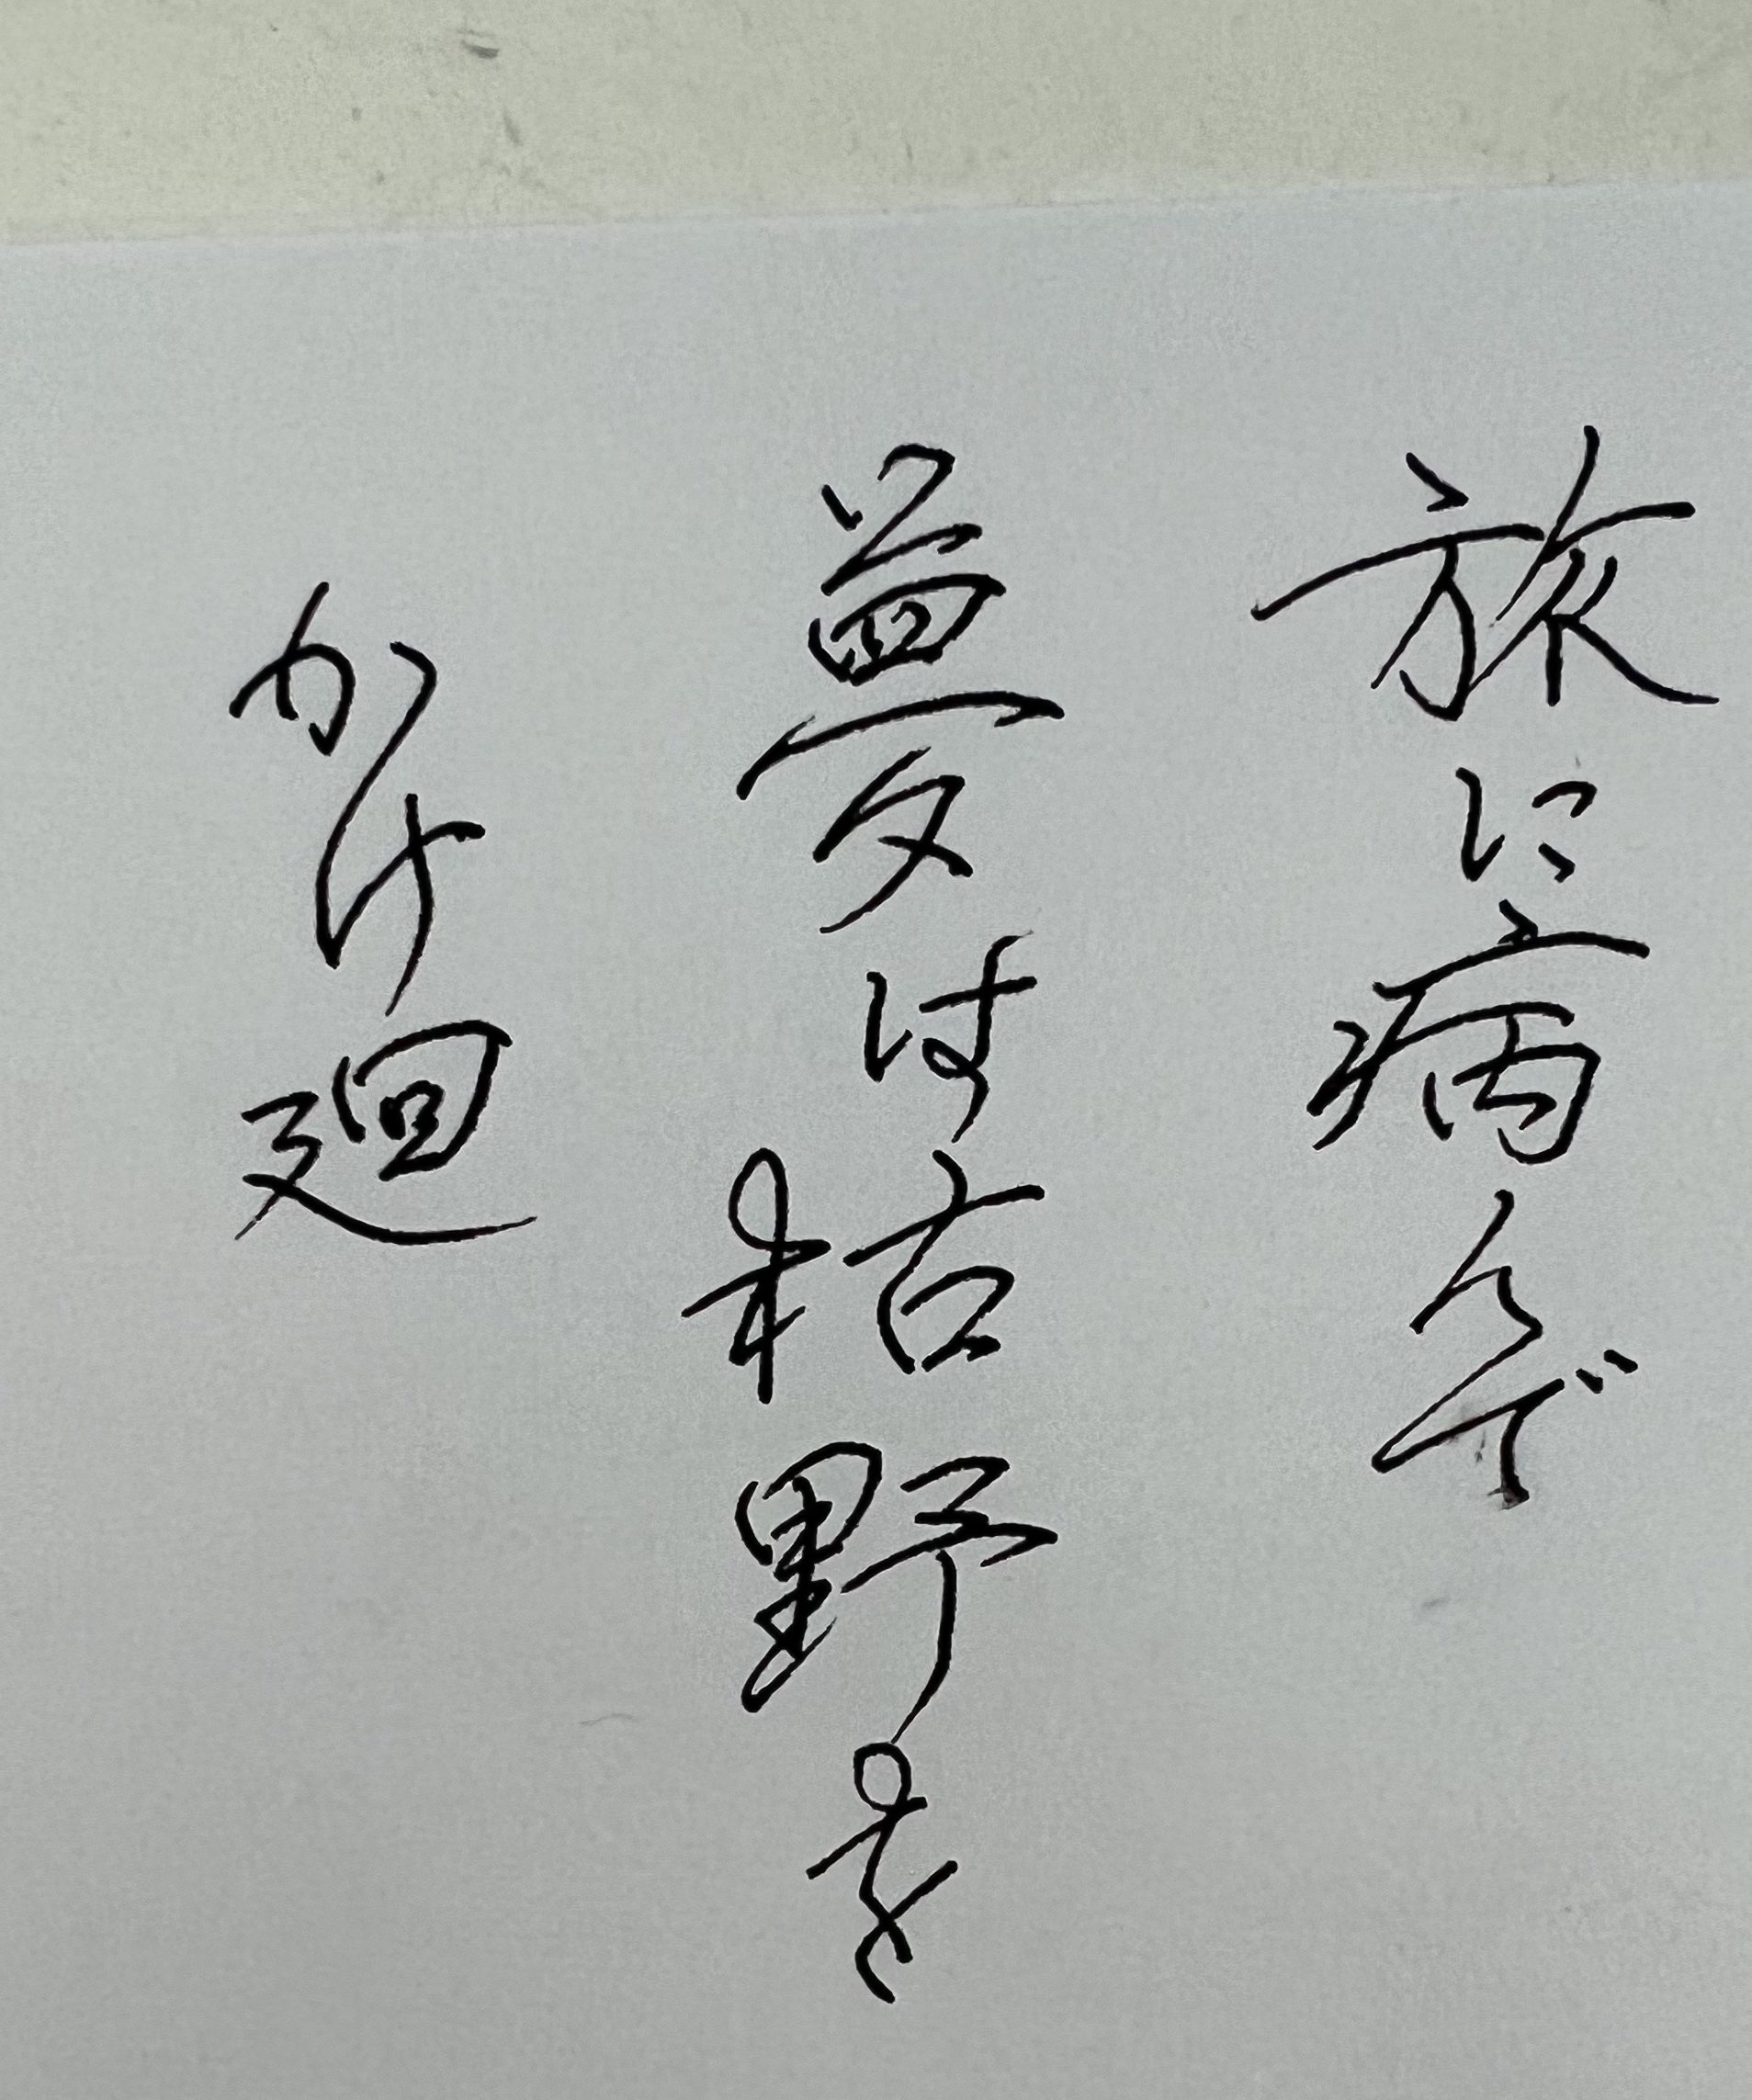 旅に病んで
夢は枯野を
かけ廻